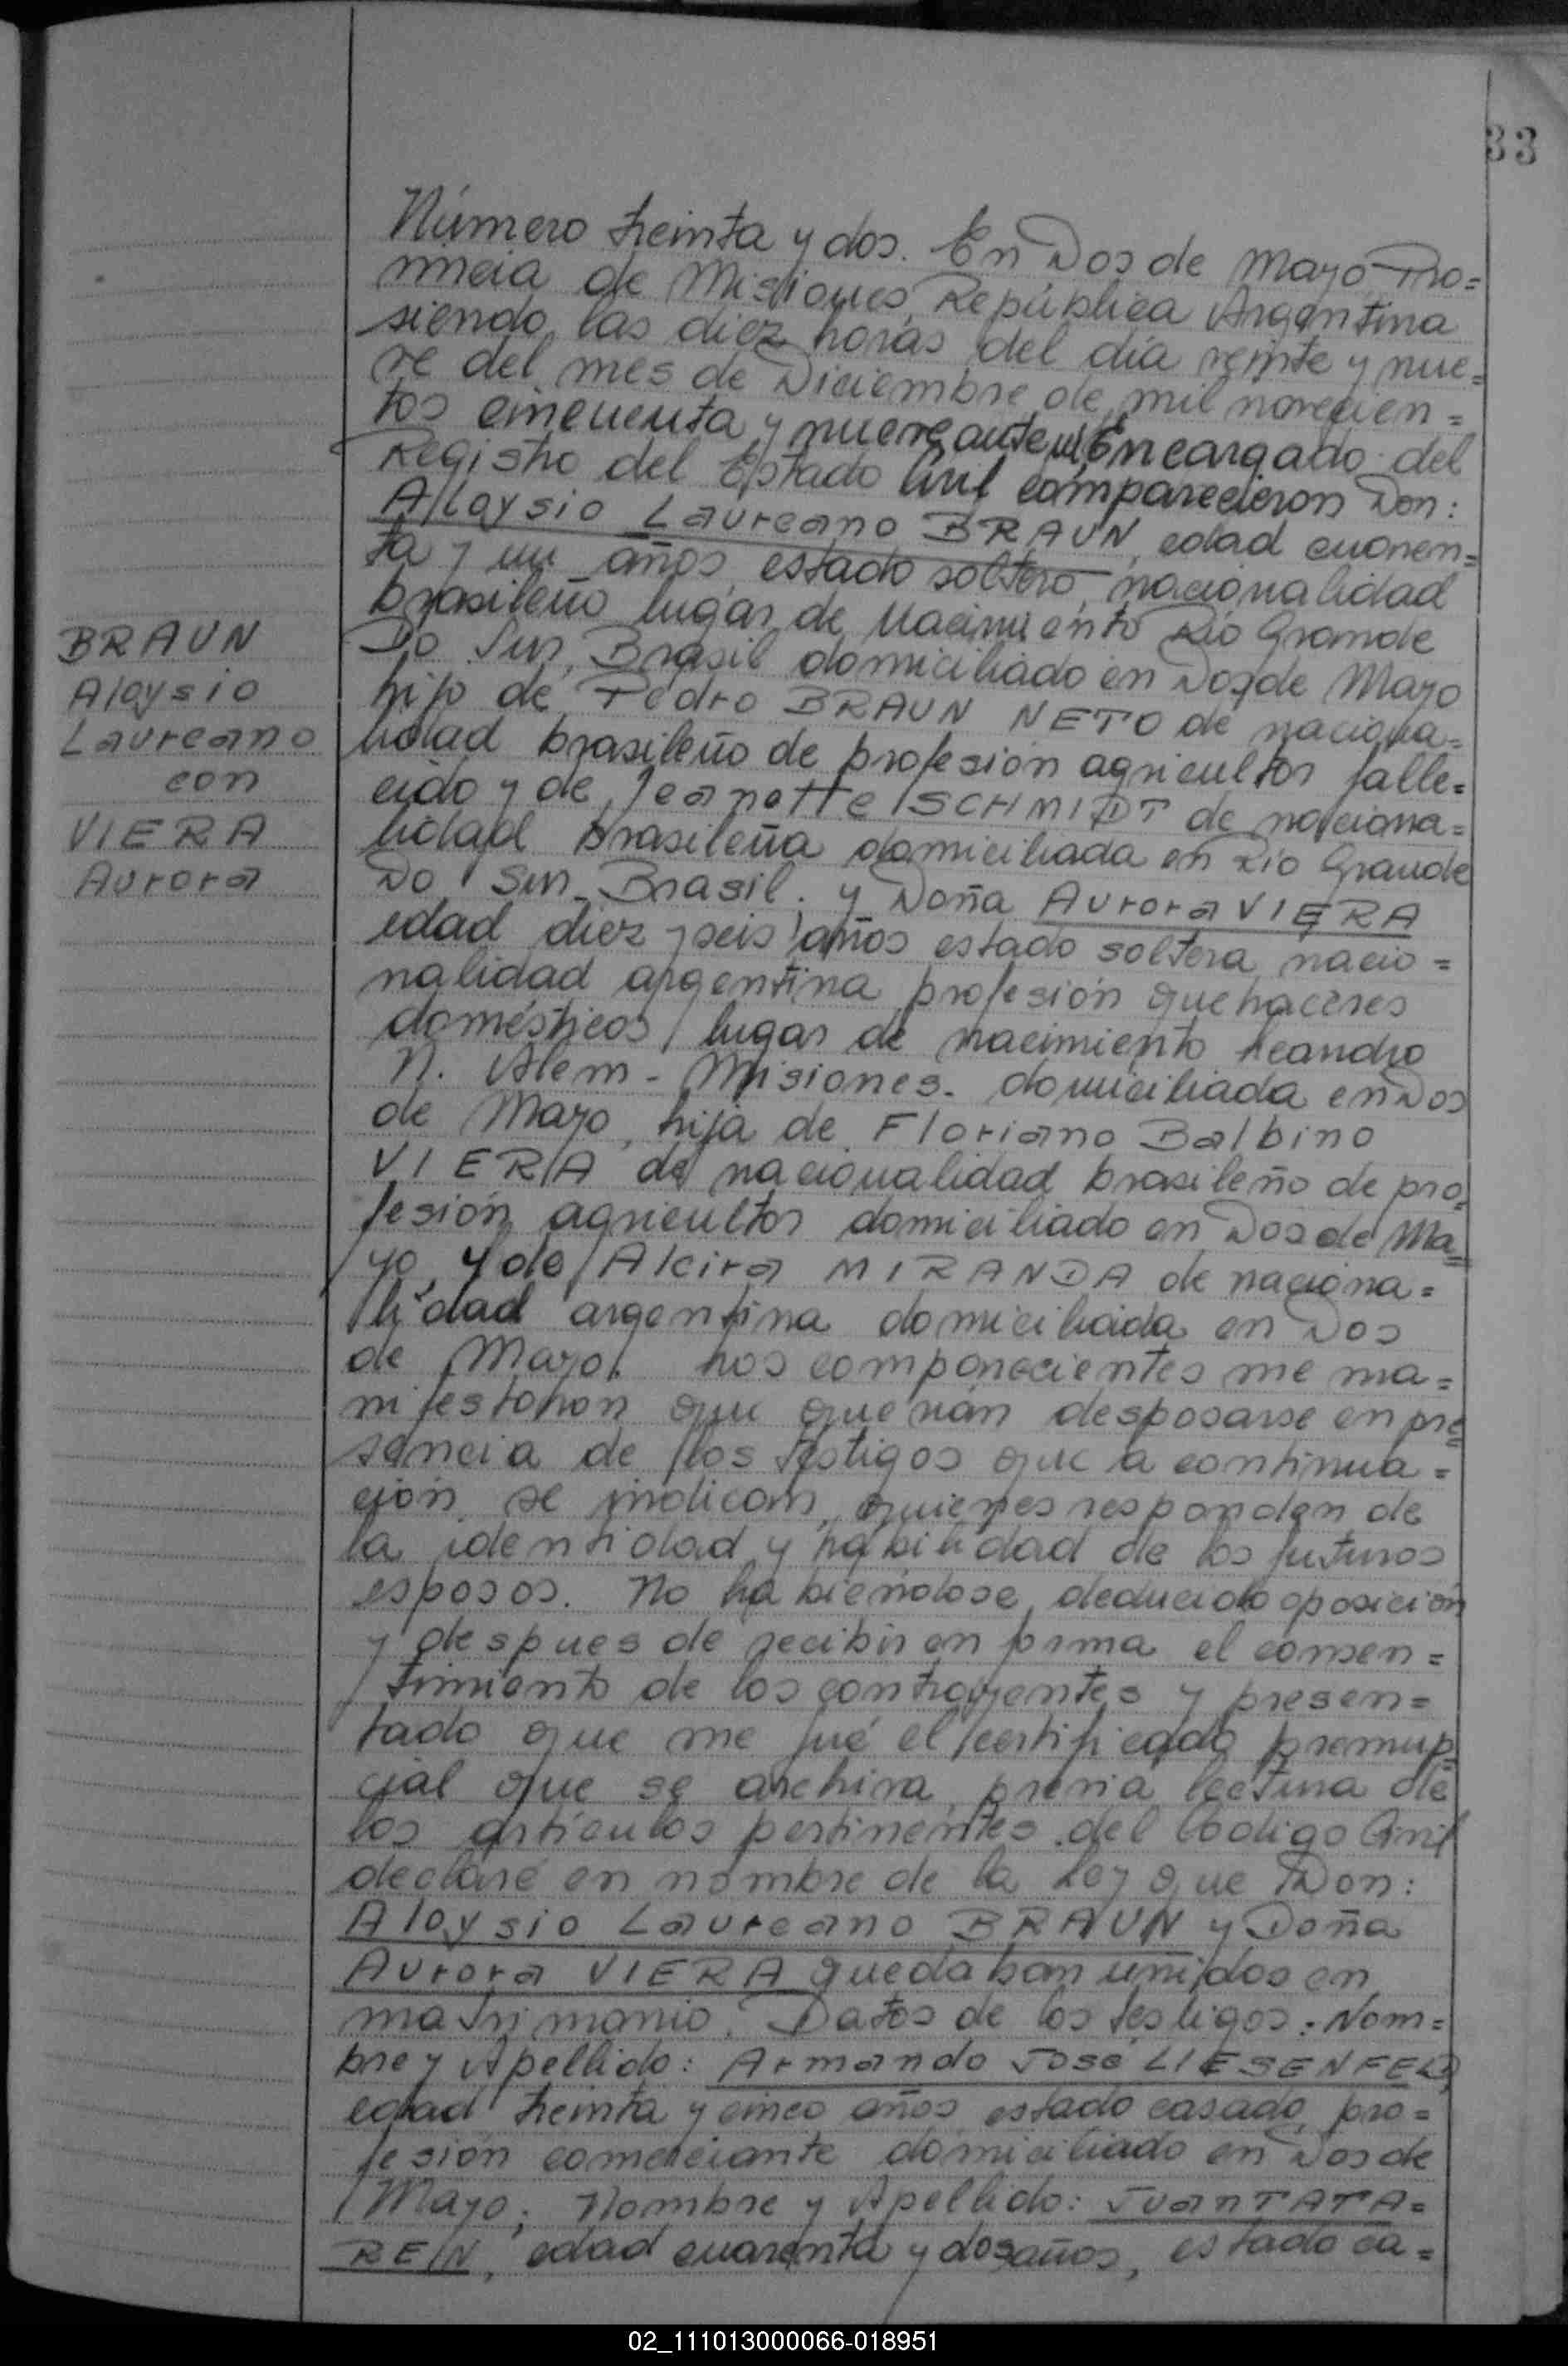 33
Número treinta y dos. En Dos de Mayo Pro=
vincia de Misiones, República Argentina
siendo las diez horas del día veinte y nue=
ve del mes de Diciembre de mil novecien=
tos cincuenta y nueve ante mí Encargado del
Registro del Estado Civil comparecieron Don:
Aloysio Laureano BRAUN, edad cuaren=
ta y un años, estado soltero, nacionalidad
brasileño lugar de nacimiento Río Grande
Do Sur, Brasil domiciliado en Dos de Mayo
hijo de Pedro BRAUN NETO de naciona=
lidad brasileño de profesión agricultor falle=
cido y de Jeanette SCHMIDT de naciona=
lidad brasileña domiciliada en Río Grande
Do Sur - Brasil. y Doña Aurora VIERA
edad diez y seis años estado soltera, nacio=
nalidad argentina profesión quehaceres
domésticos, lugar de nacimiento Leandro
N. Alem - Misiones - domiciliada en Dos
de Mayo, hija de Floriano Balbino
VIERA de nacionalidad brasileño de pro=
fesión agricultor domiciliado en Dos de Ma=
yo, y de Alcira MIRANDA de naciona=
lidad argentina domiciliada en Dos
de Mayo. Los comparecientes me ma=
nifestaron que querían desposarse en pre=
sencia de los testigos que a continua=
ción se indican, quienes responden de
la identidad y habilidad de los futuros
esposos. No habiéndose deducido oposición
y despues de recibir en forma el consen=
timiento de los contrayentes y presen=
tado que me fué el certificado prenup=
cial que se archiva, previa lectura de
los artículos pertinentes del Código Civil
declaré en nombre de la Ley que Don:
Aloysio Laureano BRAUN y Doña
Aurora VIERA quedaban unidos en
matrimonio. Datos de los testigos: Nom=
bre y Apellido: Armando José LIESENFELD,
edad treinta y cinco años estado casado, pro=
fesión comerciante domiciliado en Dos de
Mayo; Nombre y Apellido: Juan TATA=
REN, edad cuarenta y dos años, estado ca=
BRAUN
Aloysio
Laureano
con
VIERA
Aurora
02_111013000066-018951